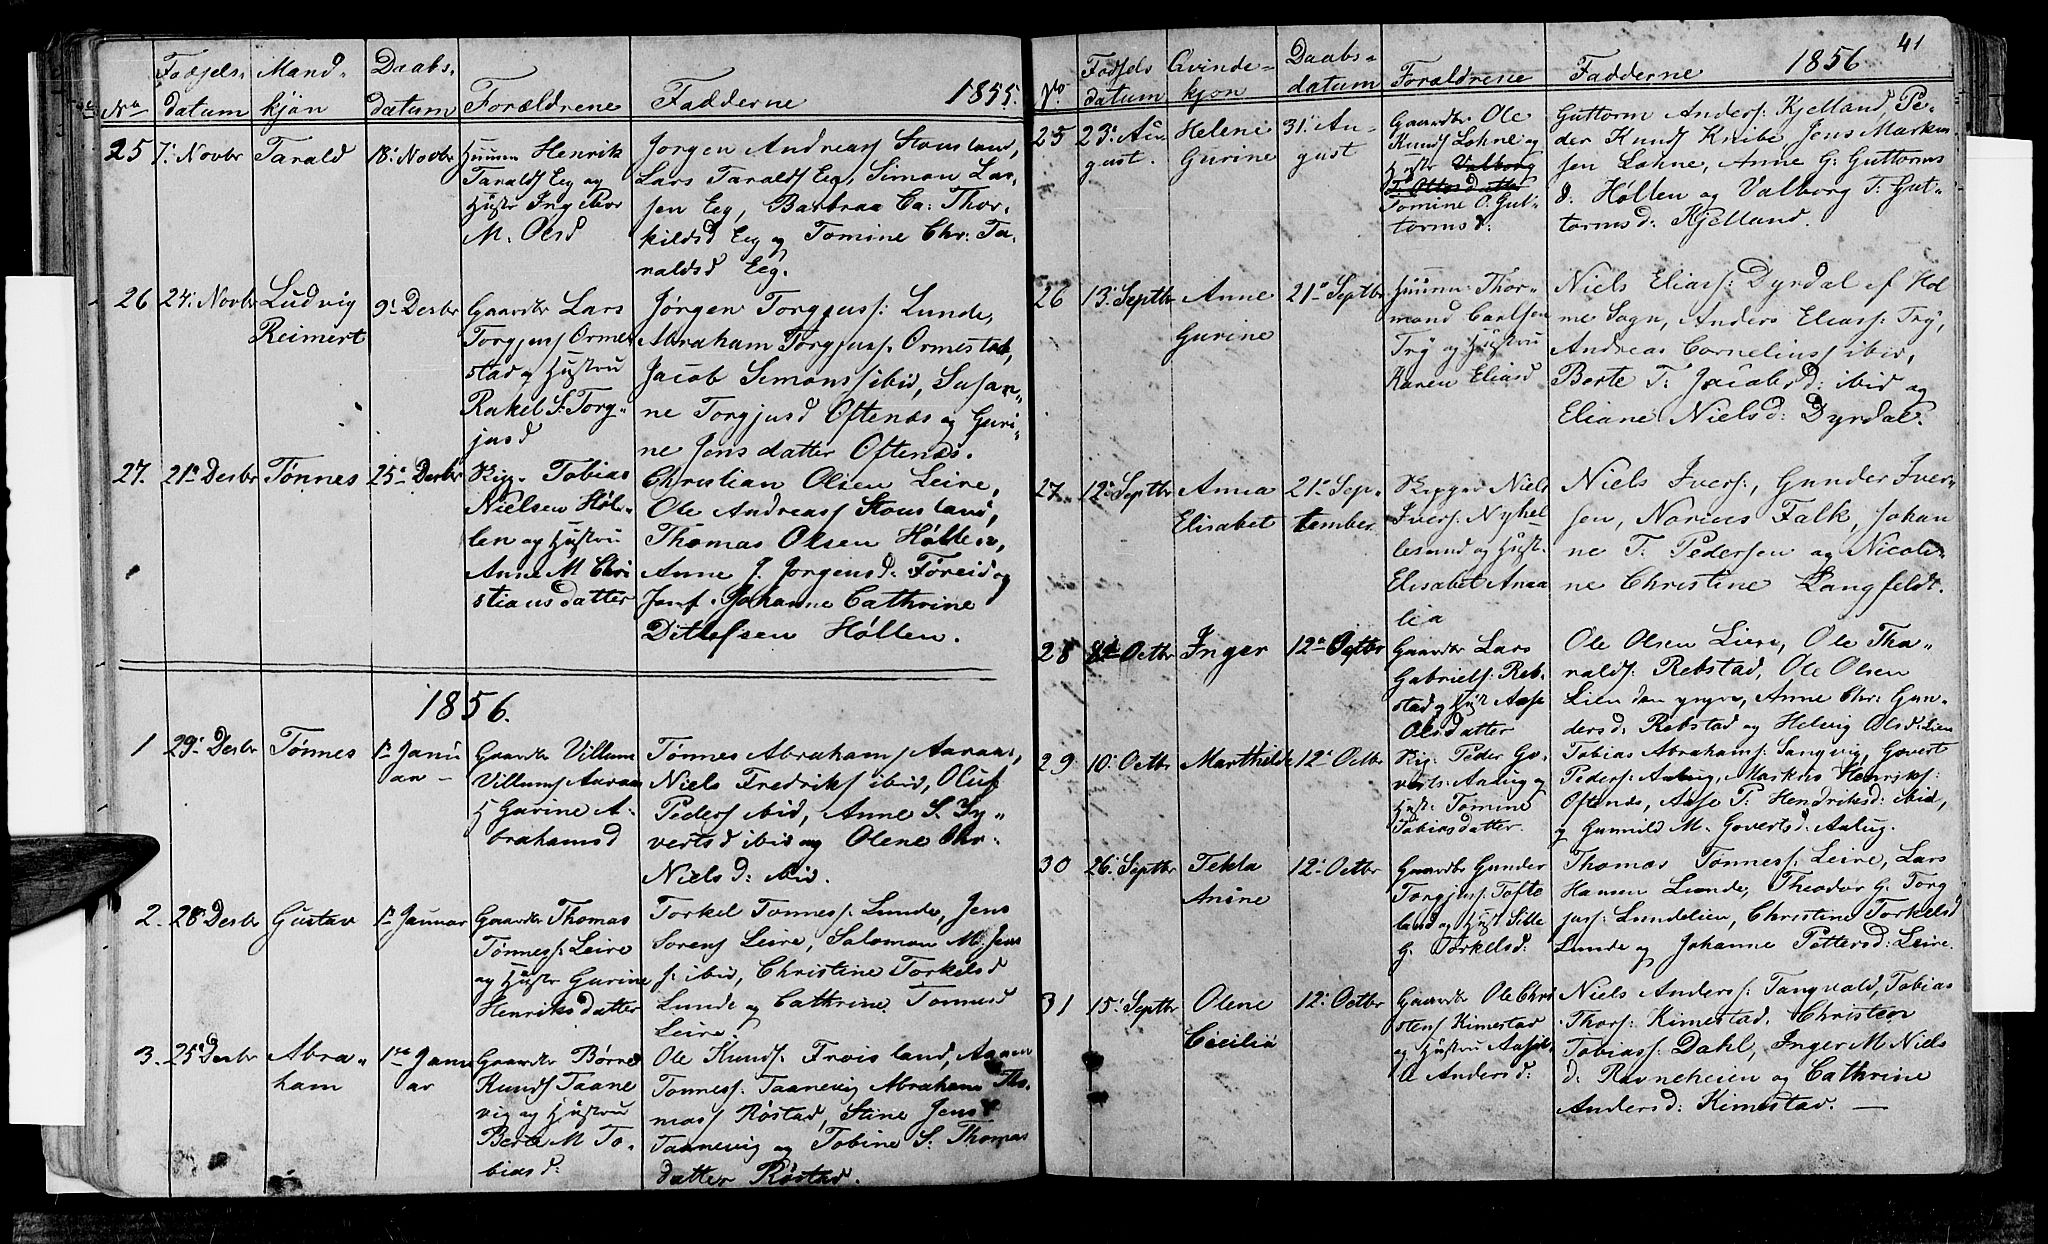 1855.
No
Fødsels-
datum
Mand-
kjøn
Daabs-
datum
Forældrene
Fadderne
25
7. Novbr
Tarald
18. Novbr
Henrik
Taralds Eeg og
Hustr Ingebor
M. Olsd
Jørgen Andreass Stousland,
Lars Taralds Eeg, Simon Lar-
sen Eeg, Barbraa Ca: Thor-
kildsd Eeg og Tomine Chr. Ta-
raldsd Eeg.
26
24. Novbr
Ludvig
Reimert
9. Desbr
Gaardbr Lars
Torgjuss Orme-
stad og Hustru
Rakel S. Torg-
jusd
Jørgen Torgjuss: Lunde,
Abraham Torgjuss. Ormestad,
Jacob Simonss ibid, Susan-
ne Torgjusd Oftenæs og Guri-
ne Jensdatter Oftenæs.
27.
21de Desbr
Tønnes
25de Desbr
Rig. Tobias
Nielsen Høl-
len og Hustru
Anne M Chri
stiansdatter
Christian Olsen Leire,
Ole Andreass Stousland,
Thomas Olsen Høllen,
Anne J. Jørgensd: Føreid og
Jomf. Johanne Cathrine
Ditlefsen Høllen.
1856.
1
29. Desbr
Tønnes
1te Janu
ar
Gaardbr Villum
Villums Aaraas
H Gurine A-
brahamsd
Tønnes Abrahams Aaraas,
Niels Fredriks ibid, Oluf
Peders ibid, Anne S. Sy-
vertsd ibid og Olene Chr.
Nielsd: ibid.
2.
28 Desbr
Gustav
1te Januar
Gaardbr Thomas
Tønness: Leire
og Hustr Gurine
Henriksdatter
Torkel Tonness: Lunde, Jens
Sorens Leire, Salomon M. Jens
s: ibid, Christine Torkelsd
Lunde og Cathrine Tonnesd
Leire.
3.
25 Desbr
Abra-
ham
1te Janu
ar
Gaardbr Børre
Knuds Taane
vig og Hustru
Berte M To-
biasd:
Ole Knuds: Froisland, Aanen
Tonness: Taanevig Abraham Tho-
mass Røstad, Stine Jens
Taanevig og Tobine S. Thomas
datter Røstad.
41
1856
No.
Fødsels
datum
Qvinde-
kjøn
Daabs-
datum
Forældrene
Fadderne
25
23. Au
gust.
Helene
Gurine
31. Au-
gust
Gaardbr Ole
Knuds Lohne og
Hustr Valborg
T. Ollesdatter
Tomine O. Gut-
tormsd:
Guttorm Anders Kjelland, Pe-
der Knuds Knibe, Jens Marku-
sen Lohne, Anne G. Guttorms
d. Høllen og Valborg T. Gut-
tormsd: Kjelland.
26
13. Septbr
Anne
Gurine
21de Septbr
Thor-
mand Carlsen
Try og Hustru
Karen Eliasd
Niels Eliass: Dyrdal af Hol
me Sogn, Anders Eliass: Try,
Andreas Cornelius s ibid,
Berte T. Jacobsd: ibid og
Eliane Nielsd: Dyrdal.
27
12. Septbr
Anna
Elisabet
21de Sep-
tember.
Niels
Ivers: Nyhel-
lesund og Hust.
Elisabet Ama
lia
Niels Ivers:, Gunder Iver-
sen, Norius Falk, Johan
ne T. Pedersen og Nicoli-
ne Christine Langfeldt.
28
8de Octbr
Inger
12te Octbr
Gaardbr Lars
Gabriels: Reb-
stad og Hust Aase
Olsdatter
Ole Olsen Liere, Ole Tha-
ralds: Rebstad, Ole Olsen
Lien den yngre, Anne Chr. Gun-
dersd: Rebstad og Helvig Olsd: Lien
29
10. Octbr
Marthilde
12. Octbr
Rig. Peder Go-
verts: Aalug og
Hust: Tomine
Tobiasdatter.
Tobias Abrahams: Sangvig, Govert
Peders: Aalug, Markus Henriks:
Oftenæs, Aase T. Hendriksd: ibid,
og Gunnild M. Govertsd: Aalug.
30
26. Septbr
Tekla
Anine
12. Octbr
Gaardbr Gunder
Torgjuss: Tofte
land og Hust Sille
G. Torkelsd:
Thomas Tonness: Leire, Lars
Hansen Lunde, Theodor G. Torg
juss: Lundelien, Christine Torkelsd
Lunde og Johanne Pettersd: Leire.
31
15. Septbr
Olene
Cicilie
12. Octbr
Gaardbr Ole Chri
stens Kimestad
og Hustru
A Andersd:
Niels Anders: Tangvald, Tobias
Thors: Kimestad, Christen
Tobiass: Dahl, Inger M. Niels
d: Ravneheien og Cathrine
Andersd: Kimestad.